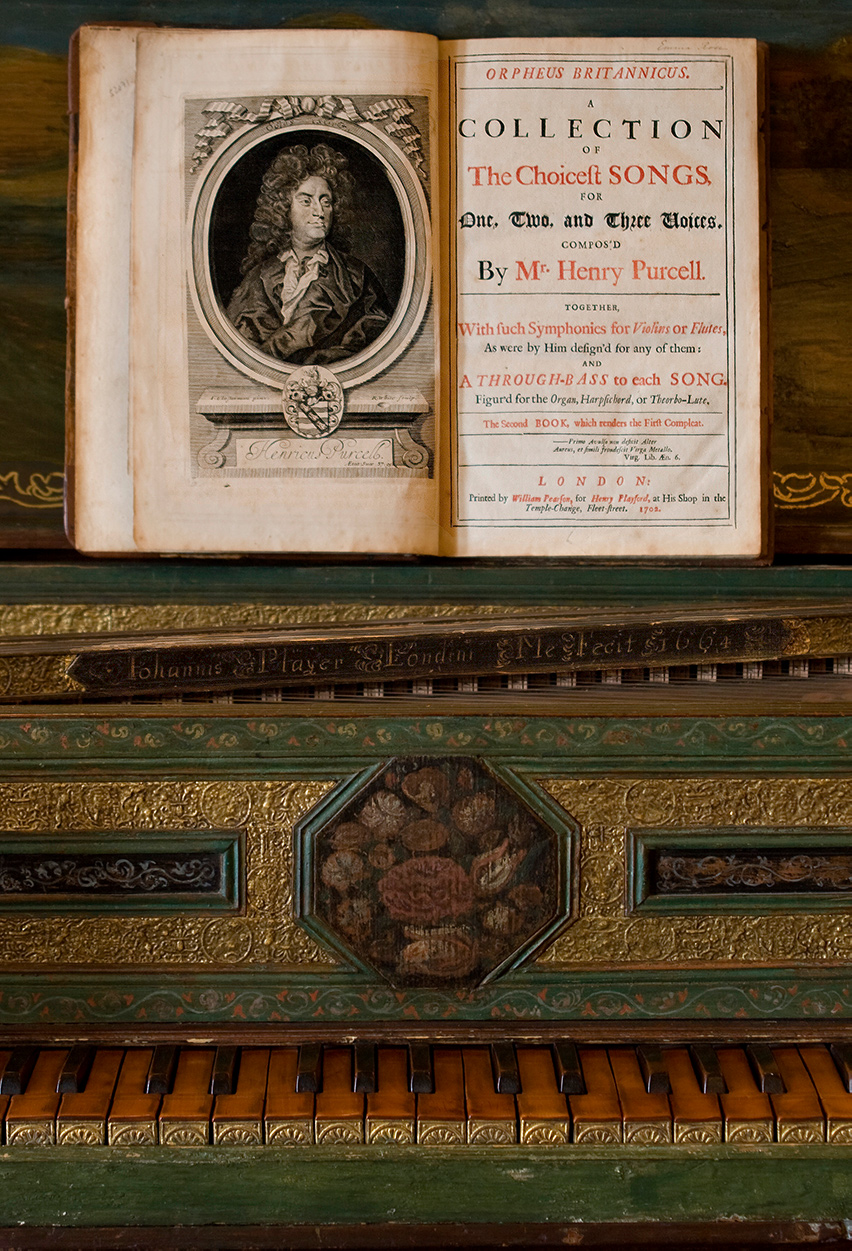 ORPHEUS BRITANNICUS.
A
COLLECTION
OF
The Choiceſt SONGS,
FOR
One, Two, and Three Voices,
COMPOS'D
By Mr. Henry Purcell.
TOGETHER,
With ſuch Symphonies for Violins or Flutes,
As were by Him deſign'd for any of them:
AND
A THROUGH-BASS to each SONG.
Figur'd for the Organ, Harpſichord, or Theorbo-Lute,
The Second BOOK, which renders the Firſt Compleat.
——Primo Avulſo non deficit Alter
Aureus, et ſimili frondeſcit Virga Metallo.
Virg. Lib. Æn. 6.
LONDON:
Printed by William Pearſon, for Henry Playford, at His Shop in the
Temple-Change, Fleet-ſtreet. 1702.
Henricus Purcell.
Iohannis Player Londini Me Fecit 1664